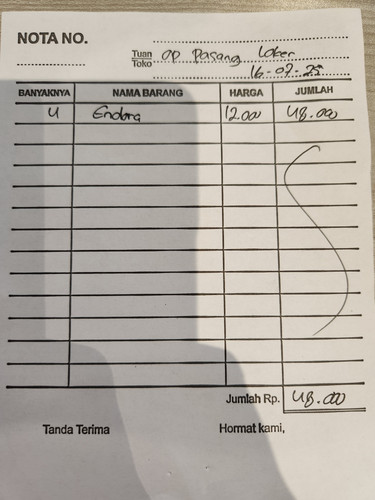 NOTA NO.
Tuan
Toko
op Pasang Loker
16-07-25
BANYAKNYA NAMA BARANG HARGA JUMLAH
4 12.000 48.000
Jumlah Rp. 48.000
Tanda Terima Hormat kami,